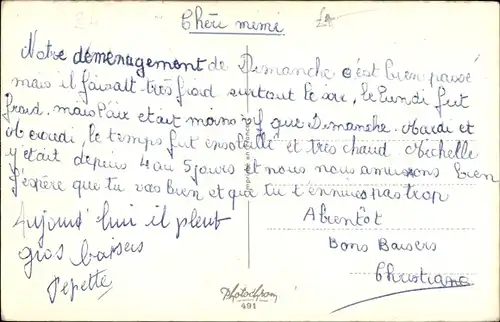 Chéri mémé
Notre déménagement de Dimanche c'est bien passé
mais il faisait très froid surtout le soir, le lundi fut
froid, mais l'air était moins vif que Dimanche. Mardi et
Mercredi, le temps fut ensoleillé et très chaud Michelle
y était depuis 4 au 5 jours et nous nous amusions bien
J'espère que tu vas bien et que tu t'ennuies pas trop
Aujourd'hui il pleut
gros baisers
Pepette
A bientôt
Bons Baisers
Christiane
Photochrom
491